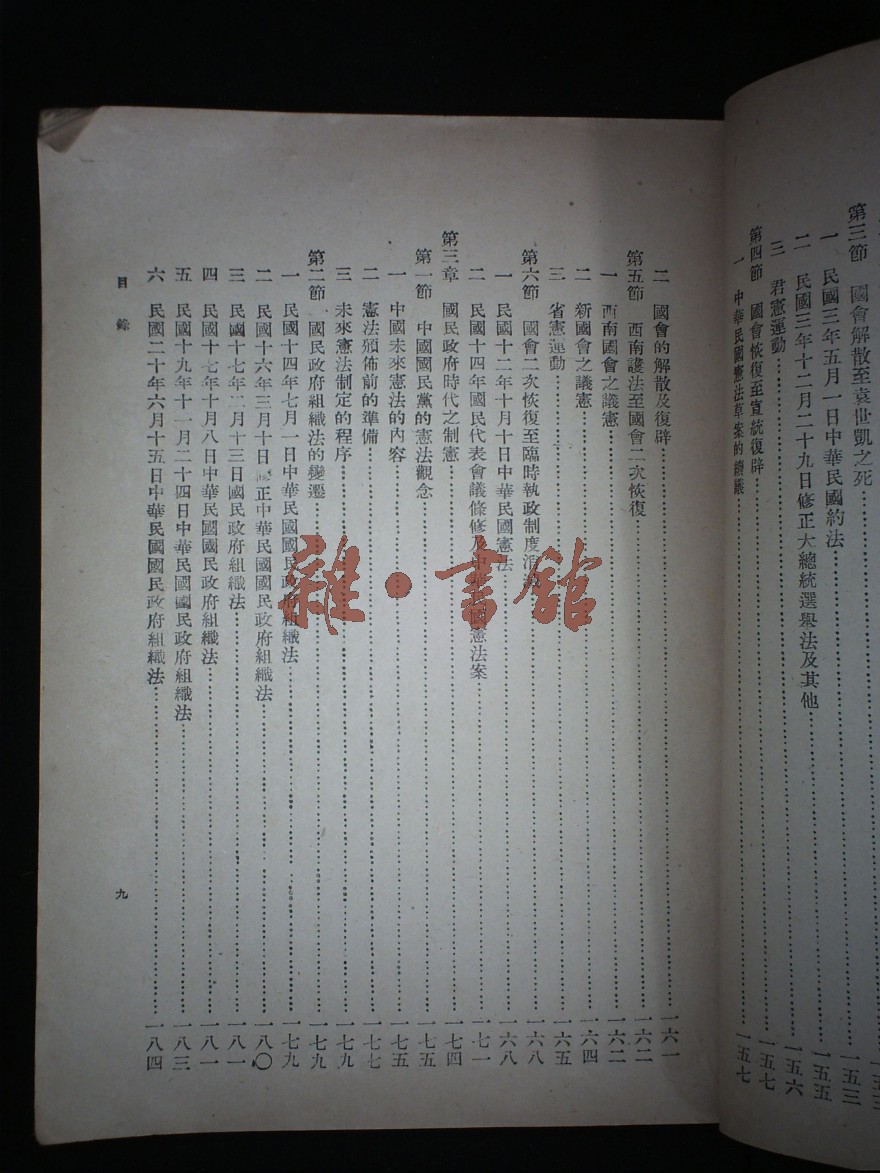 第三節 國會解散至袁世凱之死 一五三
一 民國三年五月一日中華民國約法 一五三
二 民國三年十二月二十九日修正大總統選舉法及其他 一五五
三 君憲運動 一五六
第四節 國會恢復至宣統復辟 一五七
一 中華民國憲法草案的續議 一五七
二 國會的解散及復辟 一六一
第五節 西南護法至國會二次恢復 一六二
一 西南國會之議憲 一六二
二 新國會之議憲 一六四
三 省憲運動 一六五
第六節 國會二次恢復至臨時執政制度消滅 一六八
一 民國十二年十月十日中華民國憲法 一六八
二 民國十四年國民代表會議條修及中華民國憲法案 一七一
第三章 國民政府時代之制憲 一七四
第一節 中國國民黨的憲法觀念 一七五
一 中國未來憲法的內容 一七五
二 憲法頒佈前的準備 一七七
三 未來憲法制定的程序 一七九
第二節 國民政府組織法的變遷 一七九
一 民國十四年七月一日中華民國國民政府組織法 一七九
二 民國十六年三月十日修正中華民國國民政府組織法 一八〇
三 民國十七年二月十三日國民政府組織法 一八一
四 民國十七年十月八日中華民國國民政府組織法 一八一
五 民國十九年十一月二十四日中華民國國民政府組織法 一八三
六 民國二十年六月十五日中華民國國民政府組織法 一八四
目錄
九
雜·書館